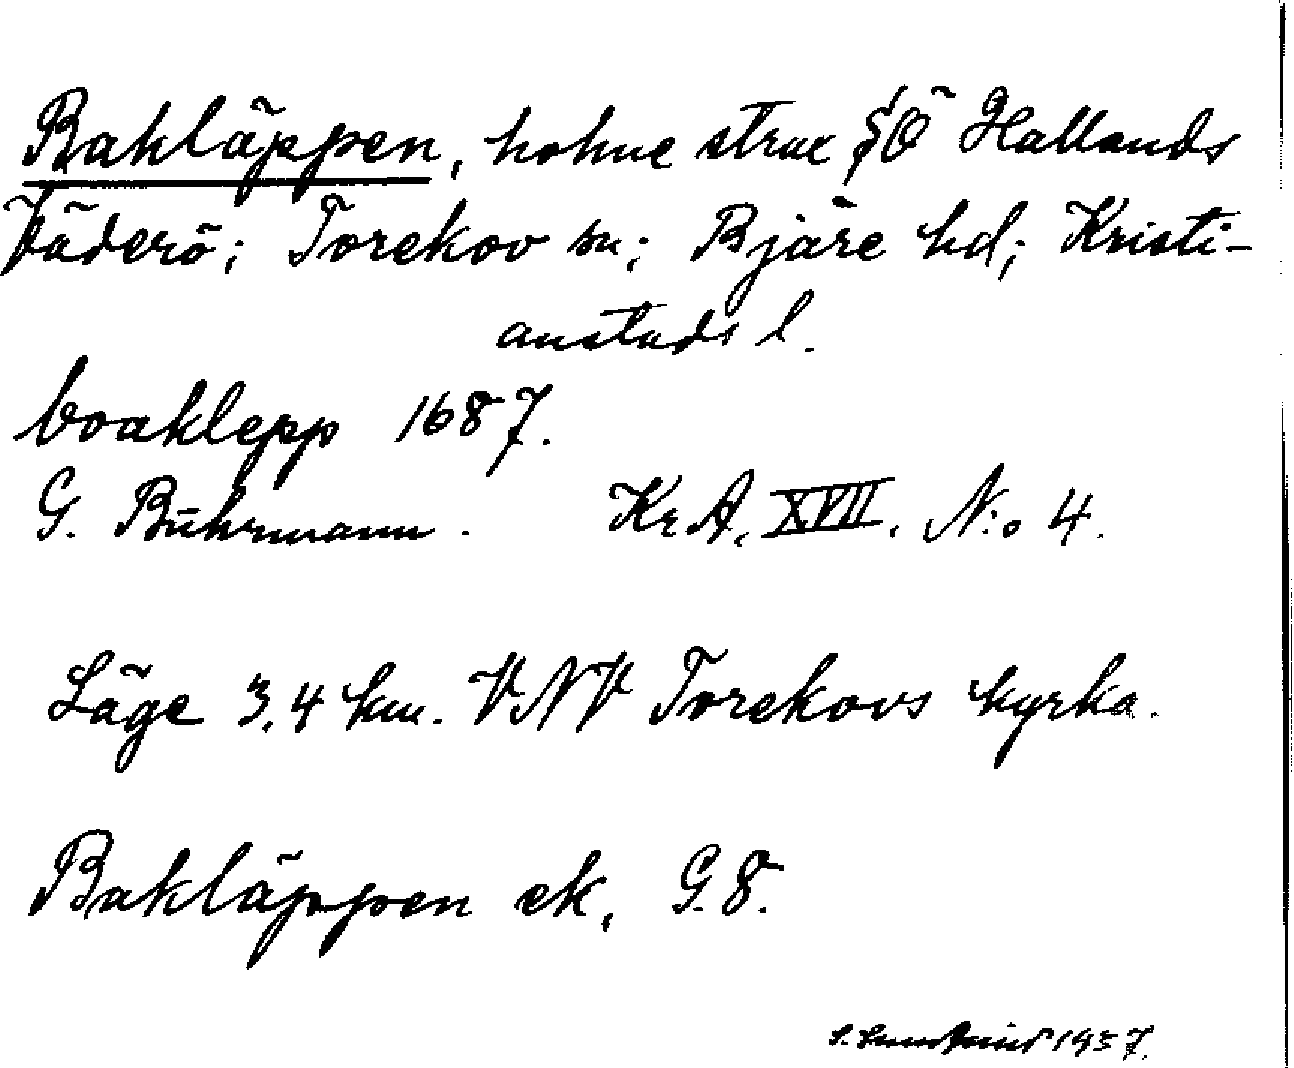 Bakläppen, holme strax SÖ Hallands
Väderö; Torekov sn; Bjäre hd; Kristi-
anstads l.
boaklepp 1687.
G. Buhrmann. Kr A, XVII. N:o 4.
Läge 3,4 km. VNV Torekovs kyrka.
Bakläppen ek, G.8.
1937.